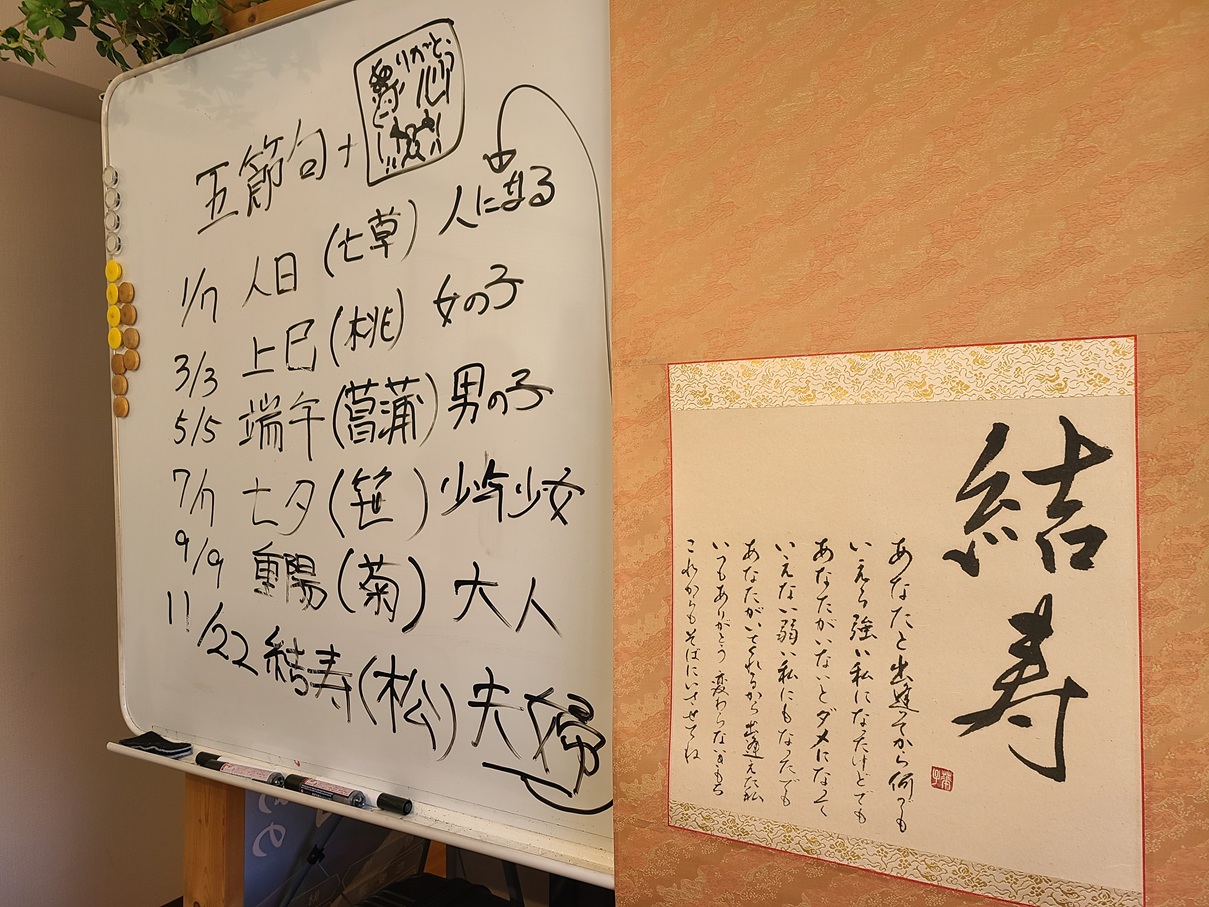 五節句+
ありがとう
心
1/7 人日 (七草) 人になる
3/3 上巳 (桃) 女の子
5/5 端午 (菖蒲) 男の子
7/7 七夕 (笹) 少年少女
9/9 重陽 (菊) 大人
11/22 結寿 (松) 夫婦
結寿
あなたと出逢ってから何つも
いえる強い私になったけどでも
あなたがいないとダメになって
いえない弱い私にもなったでも
あなたがいてくれるから出逢えた私
いつもありがとう変わらないきもち
これからもそばにいさせてね